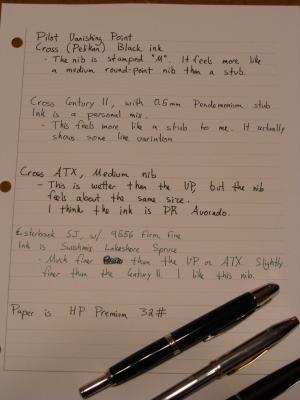 Pilot Vanishing Point
Cross (Pelikan) Black ink
- The nib is stamped "M". It feels more like
a medium round-point nib than a stub.
Cross Century II, with 0.6mm Pendemonium stub
Ink is a personal mix.
- This feels more like a stub to me. It actually
shows some line variation.
Cross ATX, Medium nib
- This is wetter than the VP, but the nib
feels about the same size.
I think the ink is PR Avocado.
Esterbrook SJ, w/ 9556 Firm Fine
Ink is Swishmix Lakeshore Spruce
- Much finer than the VP or ATX. Slightly
finer than the Century II. I like this nib.
Paper is HP Premium 32#